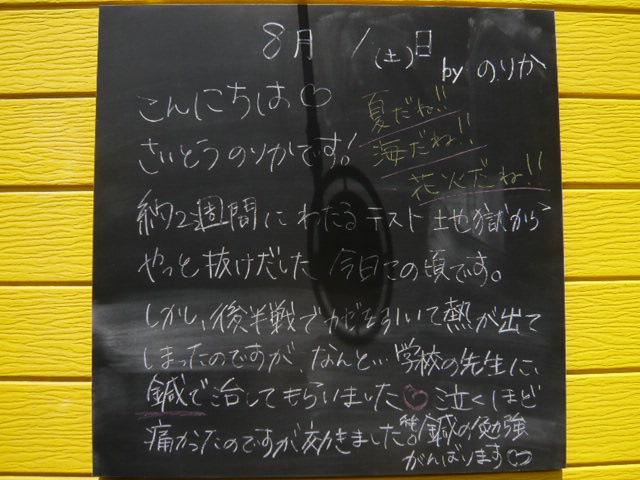 8月 1(土)日
by のりか
こんにちは♡
夏だね!!
海だね!!
花火だね!!
さいとうのりかです!
約2週間にわたるテスト地獄から
やっと抜けだした今日この頃です。
しかし、後半戦でカゼを引いて熱が出て
しまったのですが、なんと…学校の先生に、
鍼で治してもらいました♡泣くほど
痛かったのですが効きました。
鍼の勉強
がんばります♡